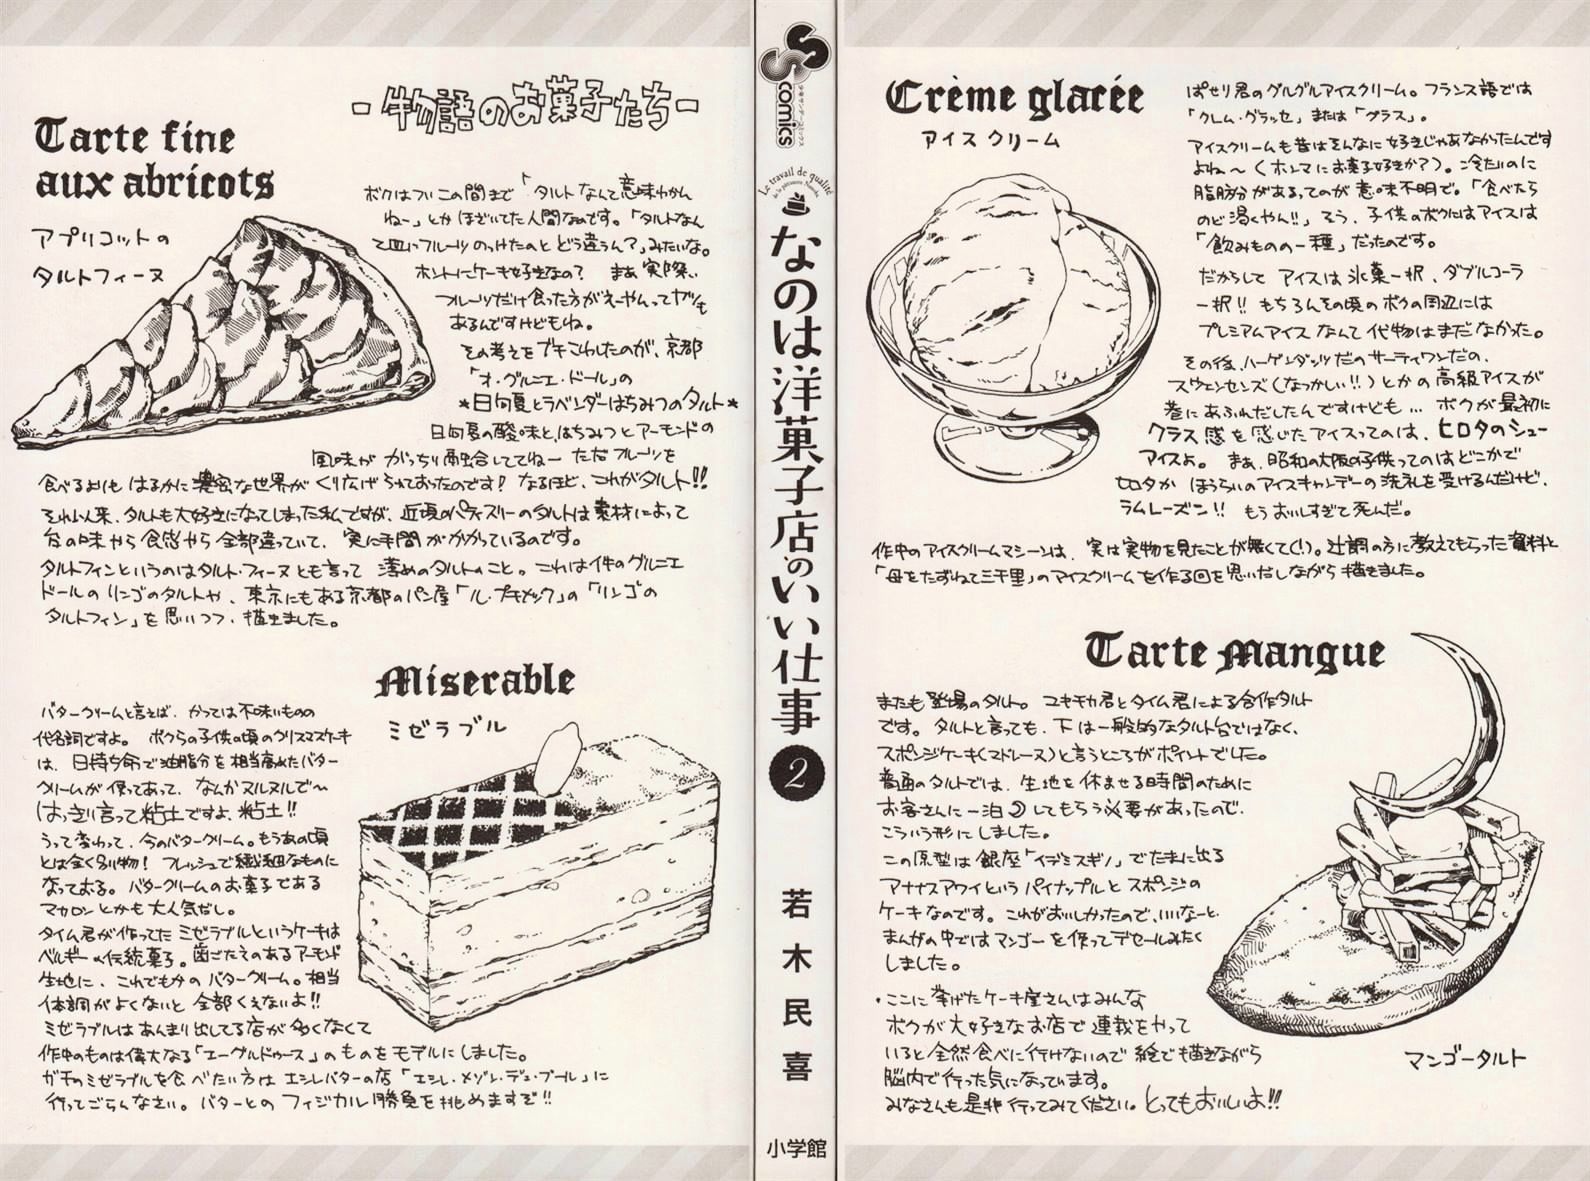 -物語のお菓子たち-
Tarte fine
aux abricots
アプリコットの
タルトフィーヌ
ボクはついこの間まで「タルトなんて意味わかん
ね〜」とかほざいてた人間なのです。「タルトなん
て皿にフルーツのっけたのとどう違うん?」みたいな。
ホントにケーキ好きなの? まあ実際、
フルーツだけ食った方がえーやんってヤツも
あるんですけどもね。
その考えをブチこわしたのが、京都
「オ・グルニエ・ドール」の
*日向夏とラベンダーはちみつのタルト*
日向夏の酸味と、はちみつとアーモンドの
風味ががっちり融合しててねー ただフルーツを
食べるよりもはるかに濃密な世界がくり広げられておったのです! なるほど、これがタルト!!
それ以来、タルトも大好きになってしまった私ですが、近頃のパティスリーのタルトは素材によって
台の味やら食感やら全部違っていて、実に手間がかかっているのです。
タルトフィンというのはタルト・フィーヌとも言って 薄めのタルトのこと。これは件のグルニエ
ドールのリンゴのタルトや、東京にもある京都のパン屋「ル・プチメック」の「リンゴの
タルトフィン」を思いつつ、描きました。
Miserable
ミゼラブル
バタークリームと言えば、かつては不味いものの
代名詞ですよ。 ボクらの子供の頃のクリスマスケーキ
は、日持ち命で油脂分を相当高めたバター
クリームが使ってあって、なんかヌルヌルで〜
はっきり言って粘土ですよ、粘土!!
うって変わって、今のバタークリーム。もうあの頃
とは全く別物! フレッシュで繊細なものに
なっておる。バタークリームのお菓子である
マカロンとかも大人気だし。
タイム君が作ってたミゼラブルというケーキは
ベルギーの伝統菓子。歯ごたえのあるアーモンド
生地に、これでもかのバタークリーム。相当
体調がよくないと全部くえないよ!!
ミゼラブルはあんまり出してる店が多くなくて
作中のものは偉大なる「エーグルドゥース」のものをモデルにしました。
ガチのミゼラブルを食べたい方はエシレバターの店「エシレ・メゾン・デュ・ブール」に
行ってごらんなさい。バターとのフィジカル勝負を挑めますぞ!!
SS comics
少年サンデーコミックス
Le travail de qualité
なのは洋菓子店のいい仕事
2
若木民喜
小学館
Crème glacée
アイスクリーム
ぱせり君のグルグルアイスクリーム。フランス語では
「クレム・グラッセ」または「グラス」。
アイスクリームも昔はそんなに好きじゃあなかったんです
よね〜(ホンマにお菓子好きか?)。冷たいのに
脂肪分があるってのが意味不明で。「食べたら
のど渇くやん!!」そう、子供のボクにはアイスは
「飲みものの一種」だったのです。
だからしてアイスは氷菓一択、ダブルコーラ
一択!! もちろんその頃のボクの周辺には
プレミアムアイスなんて代物はまだなかった。
その後、ハーゲンダッツだのサーティワンだの、
スウェンセンズ(なつかしい!!)とかの高級アイスが
巷にあふれだしたんですけども… ボクが最初に
クラス感を感じたアイスってのは、ヒロタのシュー
アイスよ。 まぁ、昭和の大阪の子供ってのはどこかで
ヒロタか ほうらいのアイスキャンデーの洗礼を受けるんだけど、
ラムレーズン!! もうおいしすぎて死んだ。
作中のアイスクリームマシーンは、実は実物を見たことが無くて(!)。辻調の方に教えてもらった資料と
「母をたずねて三千里」のアイスクリームを作る回を思いだしながら描きました。
Tarte Mangue
またも登場のタルト。ユキチカ君とタイム君による合作タルト
です。タルトと言っても、下は一般的なタルト台ではなく、
スポンジケーキ(マドレーヌ)と言うところがポイントでした。
普通のタルトでは、生地を休ませる時間のために
お客さんに一泊してもらう必要があったので、
こういう形にしました。
この原型は銀座「イデミスギノ」でたまに出る
アナナスアウイというパイナップルとスポンジの
ケーキなのです。これがおいしかったので、いいなーと。
まんがの中ではマンゴーを使ってデセールみたく
しました。
・ここに挙げたケーキ屋さんはみんな
ボクが大好きなお店で連載をやって
いると全然食べに行けないので絵でも描きながら
脳内で行った気になっています。
みなさんも是非行ってみてください。とってもおいしいよ!!
マンゴータルト